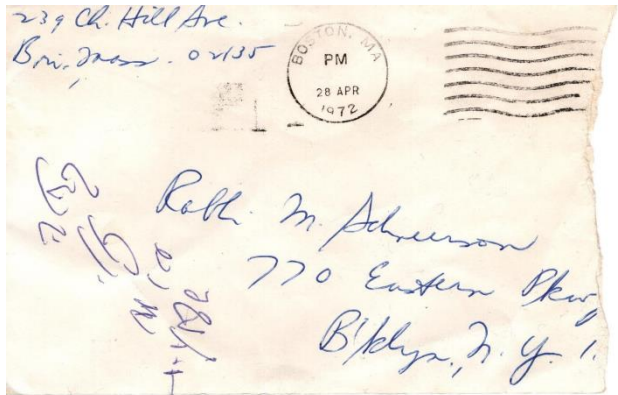 239 Ch. Hill Ave.
Bri., Mass. 02135
BOSTON, MA
PM
28 APR
1972
Rabbi M. Schneerson
770 Eastern Pkwy
B'klyn, N. Y. 1.